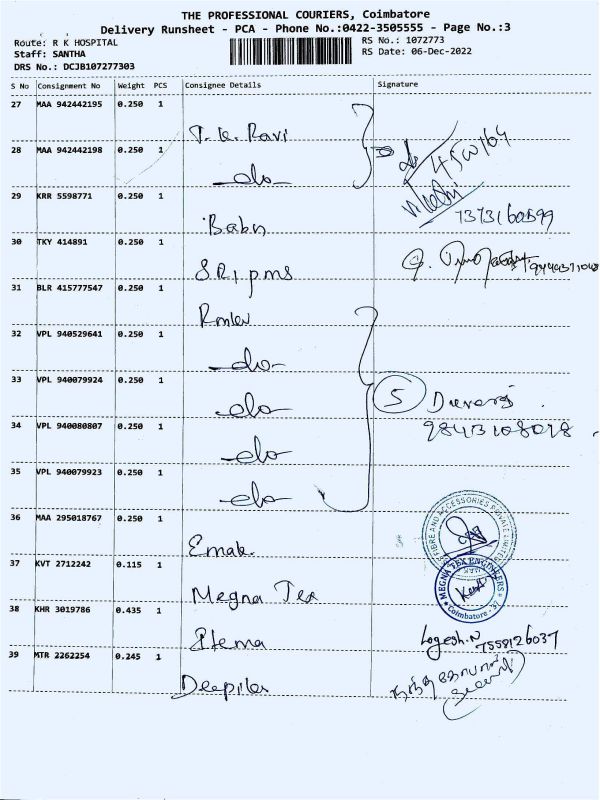 THE PROFESSIONAL COURIERS, Coimbatore
Delivery Runsheet - PCA - Phone No.:0422-3505555 - Page No.:3
Route: R K HOSPITAL
Staff: SANTHA
DRS No.: DCJB107277303
RS No.: 1072773
RS Date: 06-Dec-2022
S No Consignment No Weight PCS Consignee Details Signature
27 MAA 942442195 0.250 1
T. K. Ravi
28 MAA 942442198 0.250 1
-do-
29 KRR 5598771 0.250 1
Babu
7373160599
30 TKY 414891 0.250 1
S.R.I pms
31 BLR 415777547 0.250 1
32 VPL 940529641 0.250 1
-do-
33 VPL 940079924 0.250 1
-do-
5
34 VPL 940080807 0.250 1
-do-
35 VPL 940079923 0.250 1
-do-
36 MAA 295018767 0.250 1
FIBRE AND ACCESSORIES PRIVATE LIMITED
37 KVT 2712242 0.115 1
Megna Tex
MEGNA TEX ENGINEERS
Coimbatore - 37
38 KHR 3019786 0.435 1
Logesh.N
7558126037
39 MTR 2262254 0.245 1